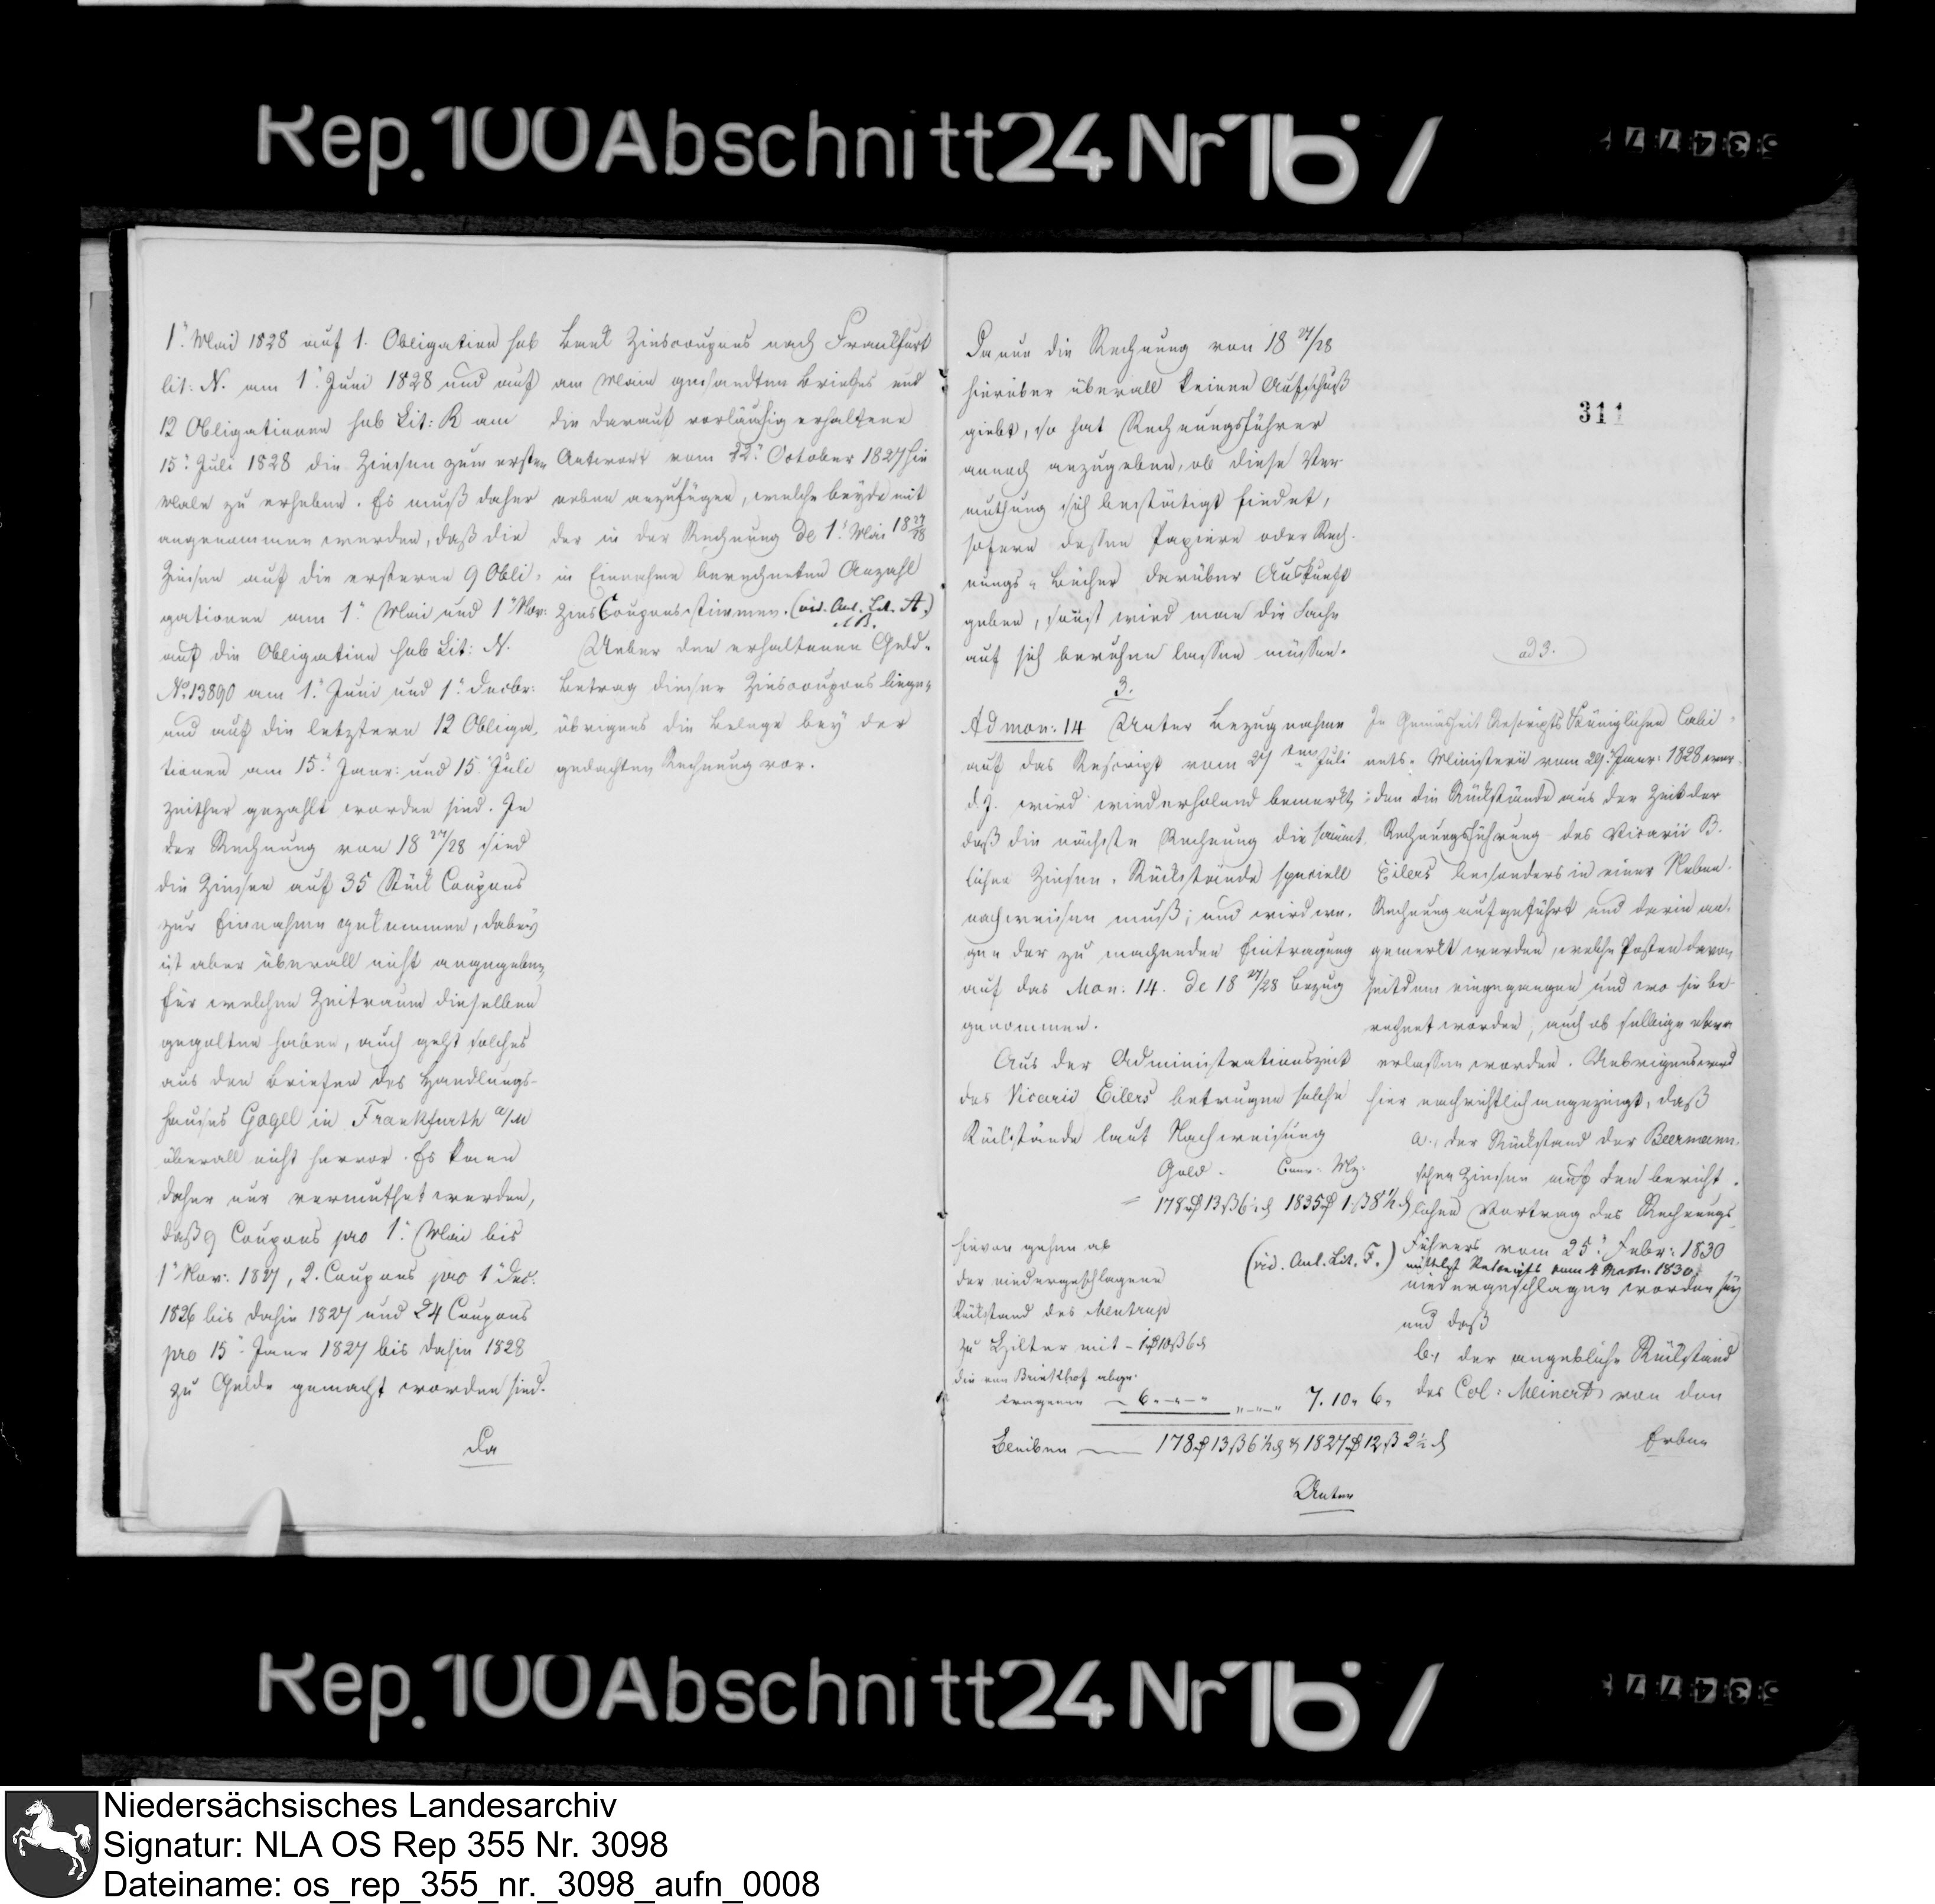 Rep. 100 Abschnitt 24 Nr 167
1.n Mai 1828 auf 1. Obligation sub
lit: N. am 1.n Juni 1828 und auf
12 Obligationen sub Lit: R am
15.n Juli 1828 die Zinsen zum ersten
Male zu erheben. Es muß daher
angenommen werden, daß die
Zinsen auf die ersteren 9 Obli-
gationen am 1.n Mai und 1.n Nov:
auf die Obligation sub Lit: N.
No. 13890 am 1.n Juni und 1.n Decbr:
und auf die letztern 12 Obliga-
tionen am 15.n Janr: und 15.n Juli
zeither gezahlt worden sind. In
der Rechnung von 18 27/28 sind
die Zinsen auf 35 Stück Coupons
zur Einnahme gekommen, dabey
ist aber überall nicht angegeben
für welchen Zeitraum dieselben
gegolten haben, auch geht solches
aus den Briefen des Handlungs-
hauses Gogel in Frankfurth a/M
überall nicht hervor. Es kann
daher nur vermuthet werden,
daß 9 Coupons pro 1.n Mai bis
1.n Nov: 1827, 2. Coupons pro 1.n Dec:
1826 bis dahin 1827 und 24 Coupons
pro 15.n Janr 1827 bis dahin 1828
zu Gelde gemacht worden sind.
Da
Bank Zinscoupons nach Frankfurt
am Main gesandten Briefes und
die darauf vorläufig erhaltene
Antwort vom 22.n October 1827 hie
neben anzufügen, welche beyde mit
der in der Rechnung de 1.n Mai 18 27/28
in Einnahme berechneten Anzahl
Zins Coupons stimmen. (vid. Anl. Lit. A.)
et B.
Ueber den erhaltenen Geld-
Betrag dieser Zinscoupons liegen
übrigens die Belege bey der
gedachten Rechnung vor.
311
Da nun die Rechnung von 18 27/28
hierüber überall keinen Aufschluß
giebt, so hat Rechnungsführer
annoch anzugeben, ob diese Ver
muthung sich bestätigt findet,
sofern dessen Papiere oder Rech-
nungs-Bücher darüber Auskunft
geben, sonst wird man die Sache
auf sich beruhen lassen müssen.
3.
Ad mon: 14 Unter Bezugnahme
auf das Rescript vom 27ten Juli
d. J. wird wiederholend bemerkt,
daß die nächste Rechnung die sämmt
lichen Zinsen-Rückstände speciell
nachweisen muß; und wird we-
gen der zu machenden Eintragung
auf das Mon: 14. de 18 27/28 Bezug
genommen.
Aus der Administrationszeit
des Vicarii Eilers betrugen solche
Rückstände laut Nachweisung
Gold. Conv. Mz.
= 178 rt 13 ß 6 ½ d 1835 rt 1 ß 8 ½ d
hievon gehen ab
der niedergeschlagene
Rückstand des Mentrup
zu Hilter mit – 1 rt 10 ß 6 d
die von Brinkhof abge-
tragenen – 6 „ – „ – „ „ – „ – „ 7. 10 „ 6 „
Bleiben — 178 rt 13 ß 6 ½ d & 1827 rt 12 ß 2 ½ d
Unter
ad 3.
In Gemäsheit Rescripts Königlichen Cabi-
nets-Ministerii vom 29.n Janr: 1828 wer-
den die Rückstände aus der Zeit der
Rechnungsführung des Vicarii B.
Eilers besonders in einer Neben-
Rechnung aufgeführt und darin an-
gemerkt werden, welche Posten davon
seitdem eingegangen und wo sie be-
rechnet worden, auch ob selbige etwa
erlassen worden. Uebrigens wird
hier nachrichtlich angezeigt, daß
a., der Rückstand der Beermann-
schen Zinsen auf den bericht-
lichen Vortrag des Rechnungs-
Führers vom 25.n Febr: 1830
(vid. Anl. Lit. F.) mittelst Rescripts vom 4 März 1830.
niedergeschlagen worden sey
und daß
b., der angebliche Rückstand
des Col: Meinert von den
Erben
Rep. 100 Abschnitt 24 Nr 167
Niedersächsisches Landesarchiv
Signatur: NLA OS Rep 355 Nr. 3098
Dateiname: os_rep_355_nr._3098_aufn_0008